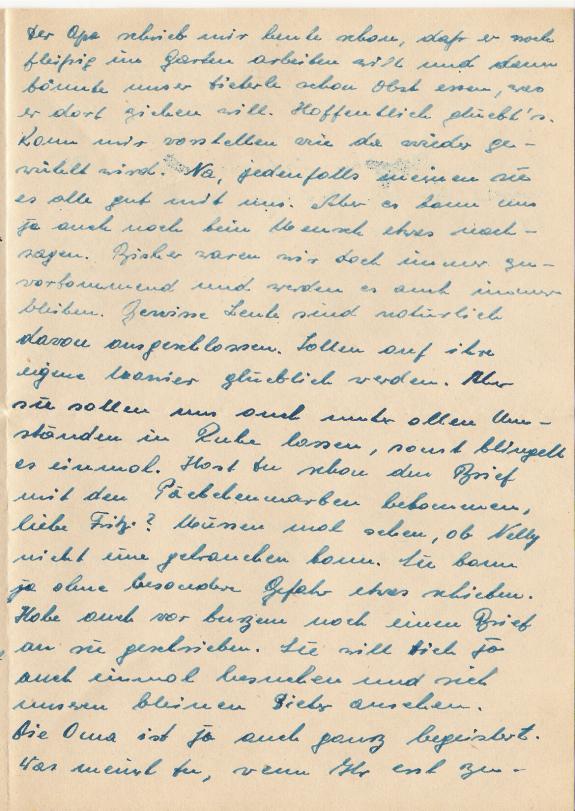 Der Opa schrieb mir heute schon, daß er noch
fleißig im Garten arbeiten will und dann
könnte unser Dieterle schon Obst essen, was
er dort ziehen will. Hoffentlich glückt's.
Kann mir vorstellen wie da wieder ge-
wühlt wird. Na, jedenfalls meinen sie
es alle gut mit uns. Aber es kann uns
ja auch noch kein Mensch etwas nach-
sagen. Bisher waren wir doch immer zu-
vorkommend und werden es auch immer
bleiben. Gewisse Leute sind natürlich
davon ausgeschlossen. Sollen auf ihre
eigne Manier glücklich werden. Aber
sie sollen uns auch unter allen Um-
ständen in Ruhe lassen, sonst klingelt
es einmal. Hast Du schon den Brief
mit den Päckchenmarken bekommen,
liebe Fritzi? Müssen mal sehen, ob Nelly
nicht eine gebrauchen kann. Sie kann
ja ohne besondere Gefahr etwas schicken.
Habe auch vor kurzem noch einen Brief
an sie geschrieben. Sie will Dich ja
auch einmal besuchen und sich
unseren kleinen Dieter ansehen.
Die Oma ist ja auch ganz begeistert.
Was meinst Du, wenn Ihr erst zu-